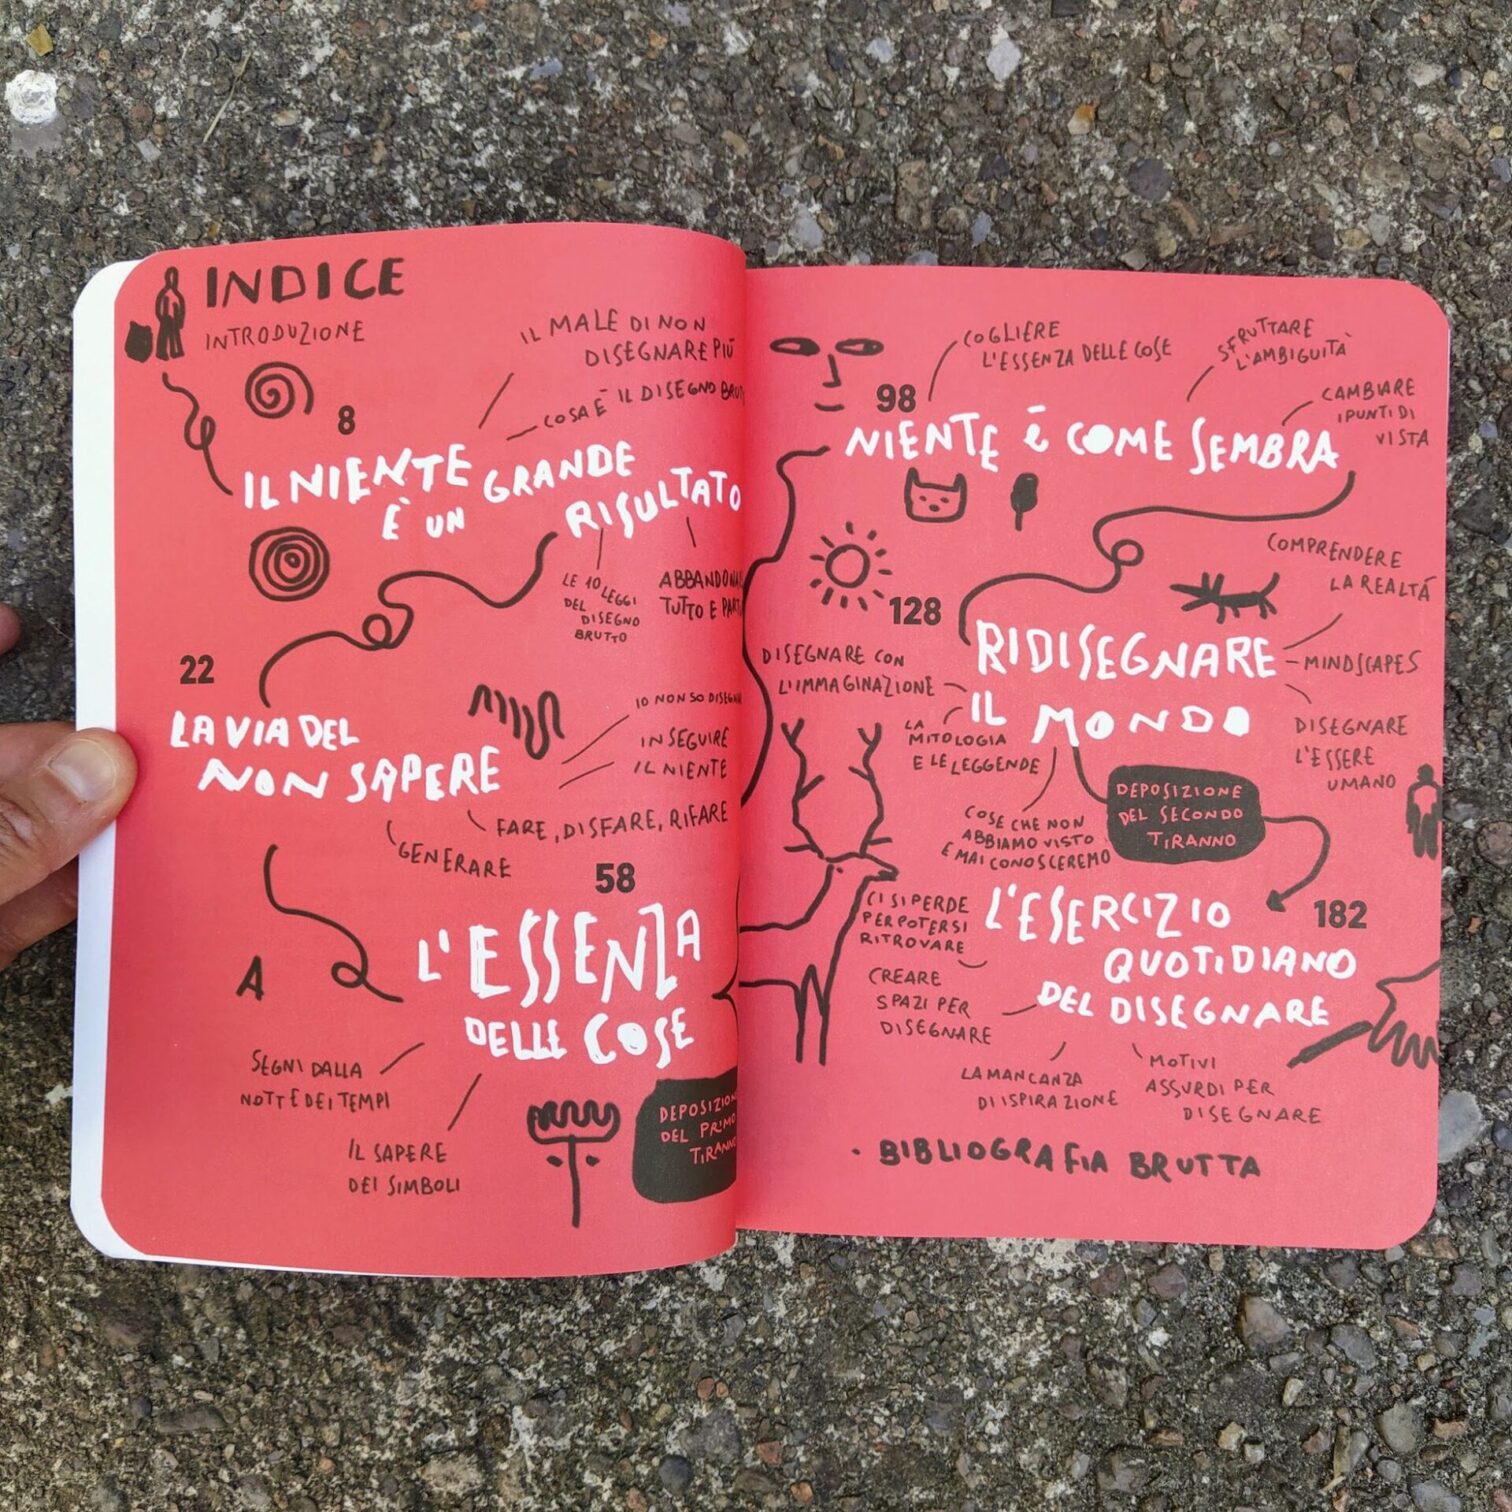 INDICE
INTRODUZIONE
IL MALE DI NON
DISEGNARE PIÙ
COSA È IL DISEGNO
8
IL NIENTE
È UN GRANDE
RISULTATO
LE 10 LEGGI
DEL DISEGNO
BRUTTO
TUTTO E
22
LA VIA DEL
NON SAPERE
IO NON SO
INSEGUIRE
IL NIENTE
FARE, DISFARE, RIFARE
GENERARE
58
L'ESSENZA
DELLE COSE
A
SEGNI DALLA
NOTTE DEI TEMPI
IL SAPERE
DEI SIMBOLI
DEL PRIMO
98
COGLIERE
L'ESSENZA DELLE COSE
SFRUTTARE
L'AMBIGUITÀ
CAMBIARE
I PUNTI DI
VISTA
NIENTE È COME SEMBRA
128
COMPRENDERE
LA REALTÁ
RIDISEGNARE
IL MONDO
MINDSCAPES
DISEGNARE CON
L'IMMAGINAZIONE
LA
MITOLOGIA
E LE LEGGENDE
DISEGNARE
L'ESSERE
UMANO
COSE CHE NON
ABBIAMO VISTO
E MAI CONOSCEREMO
DEPOSIZIONE
DEL SECONDO
TIRANNO
182
L'ESERCIZIO
QUOTIDIANO
DEL DISEGNARE
CI SI PERDE
PER POTERSI
RITROVARE
CREARE
SPAZI PER
DISEGNARE
LA MANCANZA
DI ISPIRAZIONE
MOTIVI
ASSURDI PER
DISEGNARE
• BIBLIOGRAFIA BRUTTA